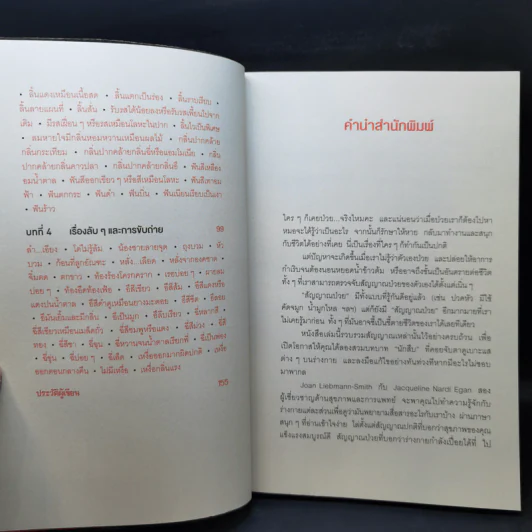 • ลิ้นแดงเหมือนเนื้อสด • ลิ้นแตกเป็นร่อง • ลิ้นราบเรียบ •
ลิ้นลายแผนที่ • ลิ้นสั่น • รับรสได้น้อยลงหรือรับรสเพี้ยนไปจาก
เดิม • มีรสเฝื่อน ๆ หรือรสเหมือนโลหะในปาก • ลิ้นไวเป็นพิเศษ
• ลมหายใจมีกลิ่นหอมหวานเหมือนผลไม้ • กลิ่นปากคล้าย
กลิ่นกระเทียม • กลิ่นปากคล้ายกลิ่นฉี่หรือแอมโมเนีย • กลิ่น
ปากคล้ายกลิ่นคาวปลา • กลิ่นปากคล้ายกลิ่นอึ • ฟันสีเหลือง
อมน้ำตาล • ฟันสีออกเขียว ๆ หรือสีเหมือนโลหะ • ฟันสีเทาอม
ฟ้า • ฟันตกกระ • ฟันดำ • ฟันบิ่น • ฟันเนียนเรียบเป็นเงา
• ฟันร้าว
บทที่ 4 เรื่องลับ ๆ และการขับถ่าย 99
ลำ...เอียง • โตไม่รู้ล้ม • น้องชายลายจุด • ถุงบวม • หัว
บวม • ก้อนที่ลูกอัณฑะ • หลั่ง...เลือด • หลั่งจากองคชาต
จิ๋มคด • ตกขาว • ท้องร้องโครกคราก • เรอบ่อย ๆ • ผายลม
บ่อย ๆ • ท้องอืดท้องเฟ้อ • อึสีเขียว • อึสีส้ม • อึสีแดงหรือ
แดงปนน้ำตาล • อึสีดำดูเหมือนยางมะตอย • อึสีซีด • อึลอย
• อึมันเยิ้มและมีกลิ่น • อึเป็นมูก • อึสีใบเรียว • อึเรียว
อึสีเขียวเหมือนเมล็ดถั่ว • ฉี่สีชมพูหรือแดง • ฉี่สีม่วง • ฉี่สี
ทอง • ฉี่สีชา • ฉี่ขุ่น • ฉี่หวานจนน้ำตาลเรียกพี่ • ฉี่เป็นฟอง
• ฉี่ขุ่น • ฉี่บ่อย ๆ • ฉี่เล็ด • เหงื่อออกมากผิดปกติ • เหงื่อ
ออกตอนกลางคืน • ไม่มีเหงื่อ • เหงื่อกลิ่นแรง
ประวัติผู้เขียน 155
คำนำสำนักพิมพ์
ใคร ๆ ก็เคยป่วย...จริงไหมคะ และแน่นอนว่าเมื่อป่วยเราก็ต้องไปหา
หมอจะได้รู้ว่าเป็นอะไร จากนั้นก็รักษาให้หาย กลับมาทำงานและสนุก
กับชีวิตได้อย่างที่เคย นี่เป็นเรื่องที่ใคร ๆ ก็ทำกันเป็นปกติ
แต่ปัญหาจะเกิดขึ้นเมื่อเราไม่รู้ว่าตัวเองป่วย และปล่อยให้อาการ
กำเริบจนต้องนอนหยอดน้ำข้าวต้ม หรืออาจถึงขั้นเป็นอันตรายต่อชีวิต
ทั้ง ๆ ที่เราสามารถตรวจจับสัญญาณป่วยของตัวเองได้ตั้งแต่เนิ่น ๆ
"สัญญาณป่วย" มีทั้งแบบที่รู้กันดีอยู่แล้ว (เช่น ปวดหัว มีไข้
คัดจมูก น้ำมูกไหล ฯลฯ) แต่ก็ยังมี "สัญญาณป่วย" อีกมากมายที่เรา
ไม่เคยรู้มาก่อน ทั้ง ๆ ที่มันอาจชี้เป็นชี้ตายชีวิตของเราได้เลยทีเดียว
หนังสือเล่มนี้รวบรวมสัญญาณเหล่านั้นไว้อย่างครบถ้วน เพื่อ
เปิดโอกาสให้คุณได้ลองสวมบทบาท "นักสืบ" ที่คอยจับตาดูเบาะแส
ต่าง ๆ บนร่างกาย และลงมือแก้ไขอย่างทันท่วงทีหากมีอะไรไม่ชอบ
มาพากล
Joan Liebmann-Smith กับ Jacqueline Nardi Egan สอง
ผู้เชี่ยวชาญด้านสุขภาพและการแพทย์ จะพาคุณไปทำความรู้จักกับ
ร่างกายแต่ละส่วนเพื่อดูว่ามันพยายามสื่อสารอะไรกับเราบ้าง ผ่านภาษา
สนุก ๆ ที่อ่านเข้าใจง่าย ไล่ตั้งแต่สัญญาณปกติที่บอกว่าสุขภาพของคุณ
แข็งแรงสมบูรณ์ดี สัญญาณป่วยที่บอกว่าร่างกายกำลังเปื่อยได้ที่ ไป